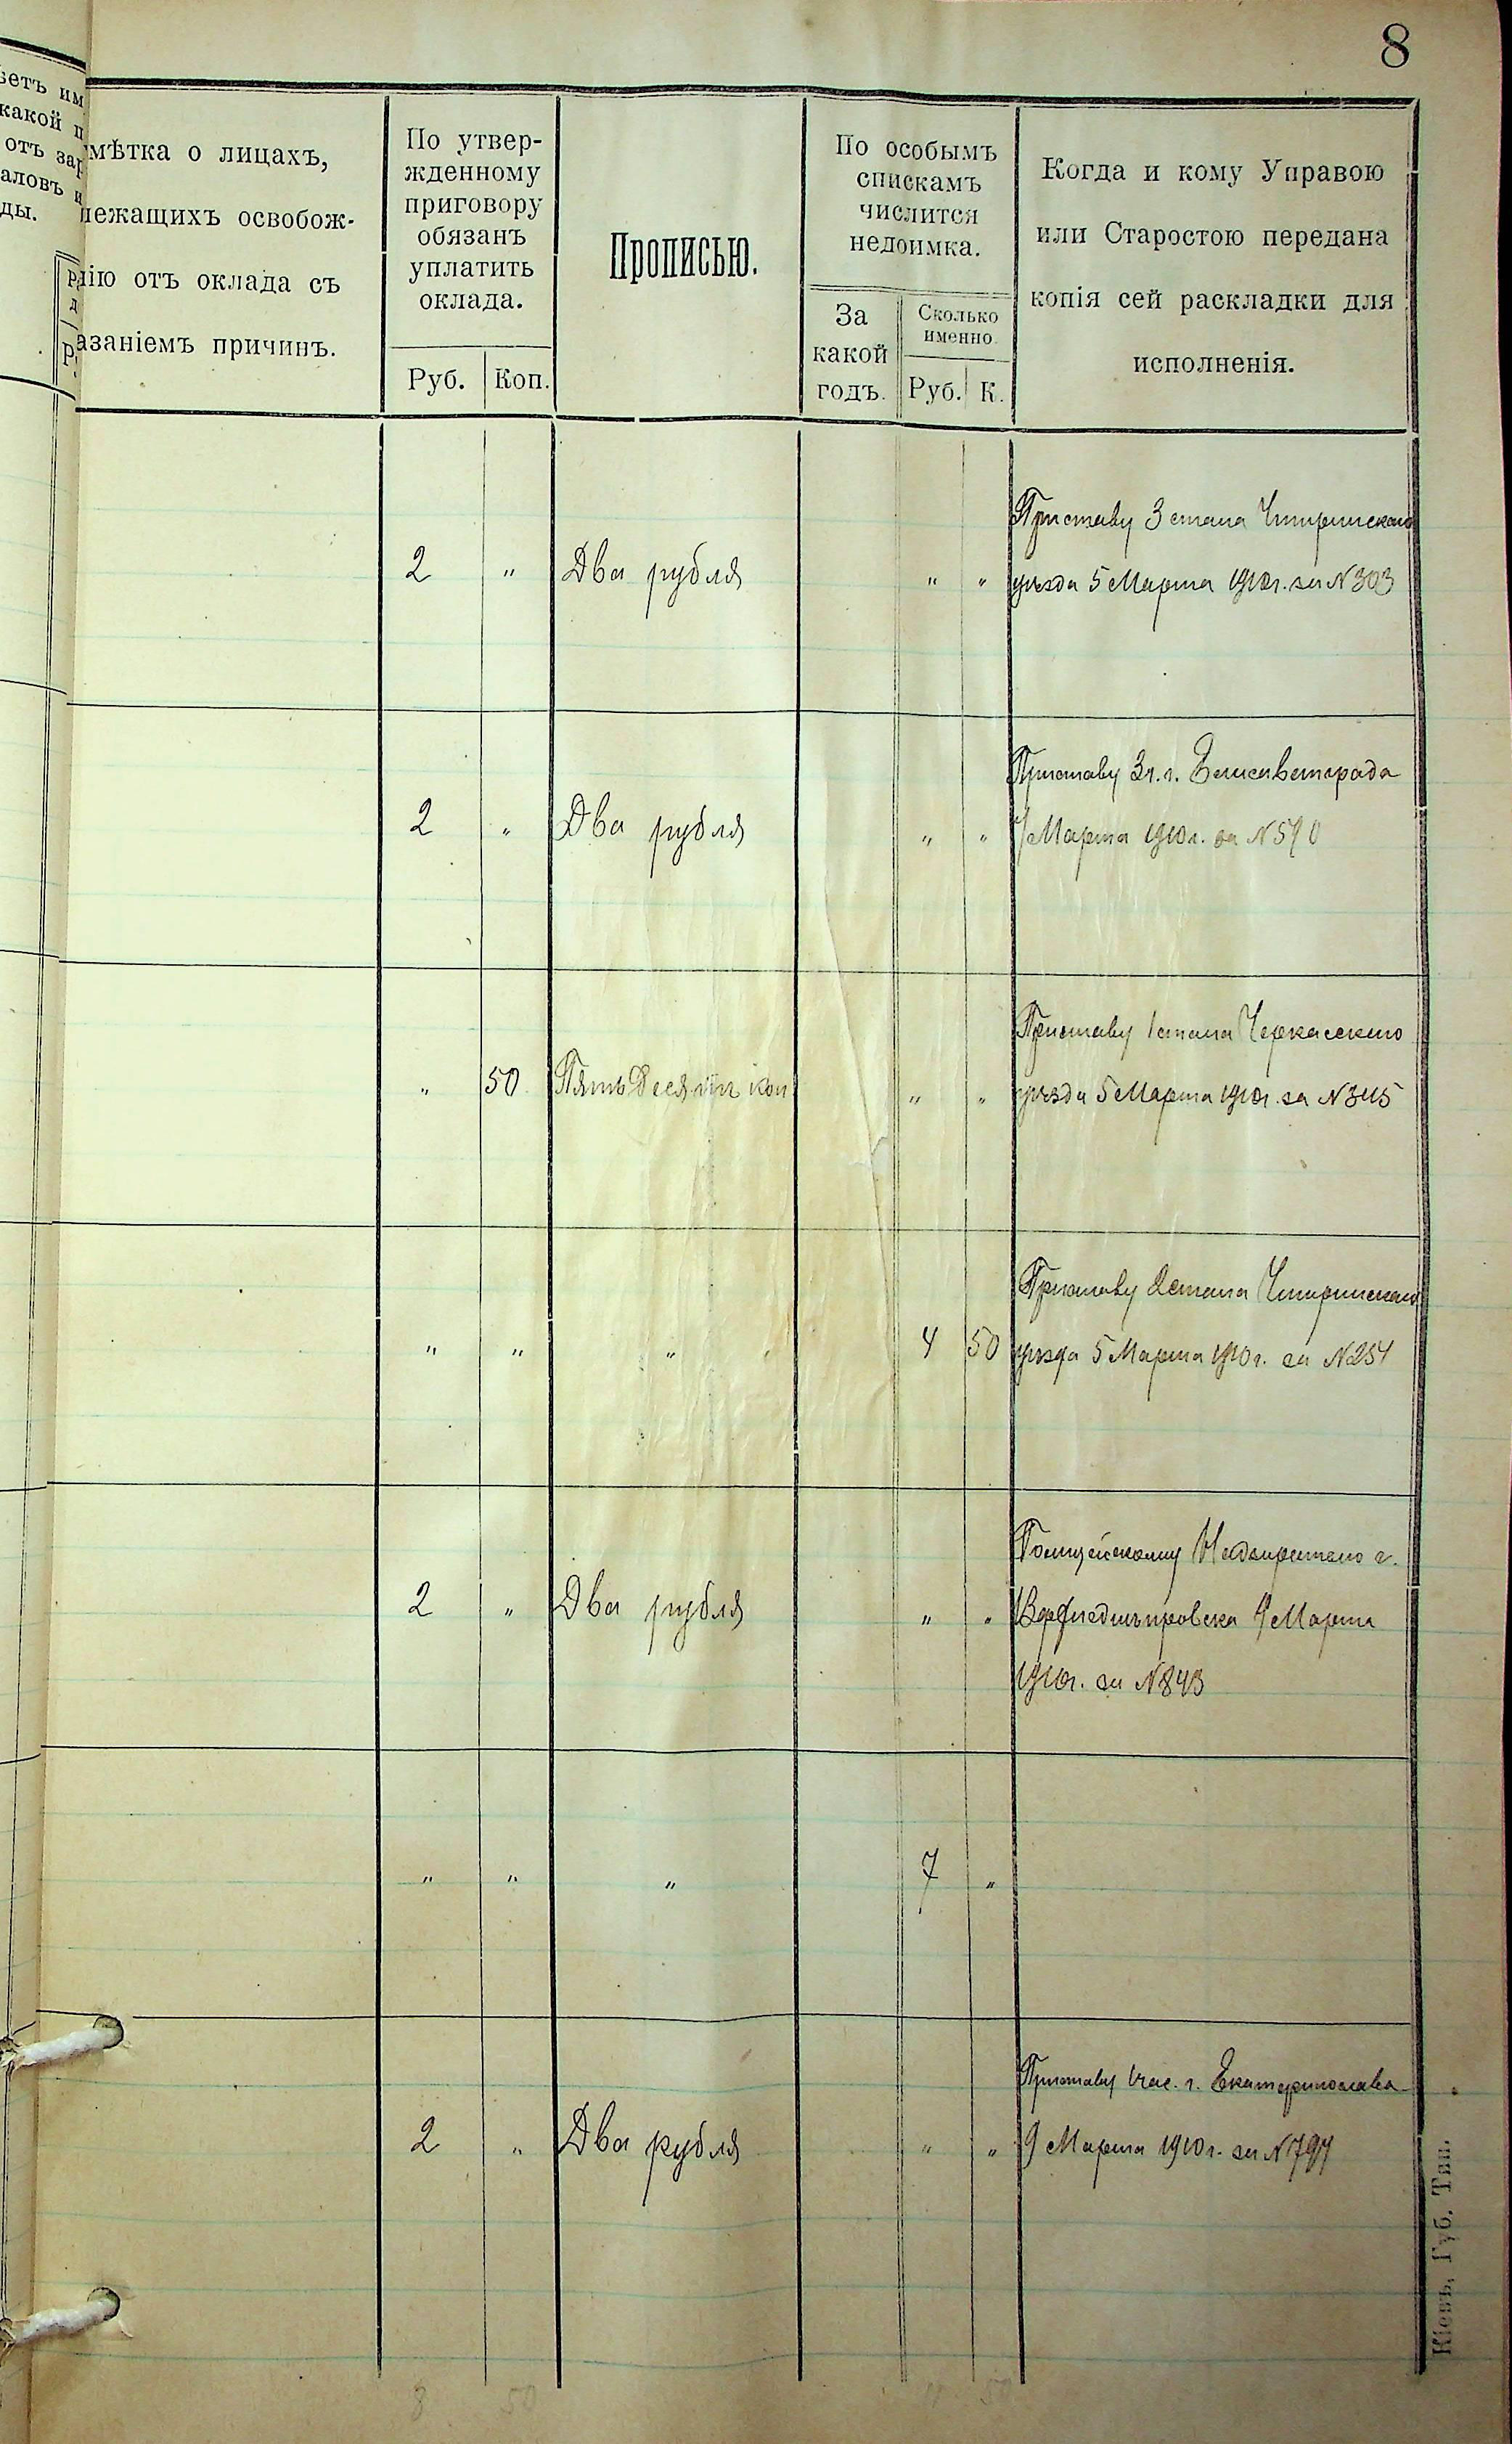 8
ветъ им
какой п
отъ зар
аловъ и
ды.
мѣтка о лицахъ,
лежащихъ освобож-
нію отъ оклада съ
азаніемъ причинъ.
По утвер-
жденному
приговору
обязанъ
уплатить
оклада.
Руб. Коп.
Прописью.
По особымъ
спискамъ
числится
недоимка.
За
какой
годъ.
Сколько
именно.
Руб. К.
Когда и кому Управою
или Старостою передана
копія сей раскладки для
исполненія.
Приставу 3 стана Чигиринскаго
2 " Два рубля " " уѣзда 5 Марта 1910г. за N 303
Приставу 3ч. г. Елисаветграда
2 " Два рубля " " Марта 1910г. за N
Приставу 1 стана Черкасскаго
" 50 Пятьдесятъ коп " " уѣзда 5 Марта 1910г. за N 345
Приставу 2 стана Чигиринскаго
" " " 4 50 уѣзда 5 Марта 1910г. за N 254
Полицейскому Надзирателю г.
2 " Два рубля " " Верхнеднѣпровска 9 Марта
1910г. за N 843
" " " 7 "
Приставу 1 час. г. Екатеринослава
2 " Два рубля " " 9 Марта 1910г. за N 794
8 50
Кіевъ, Губ. Тип.